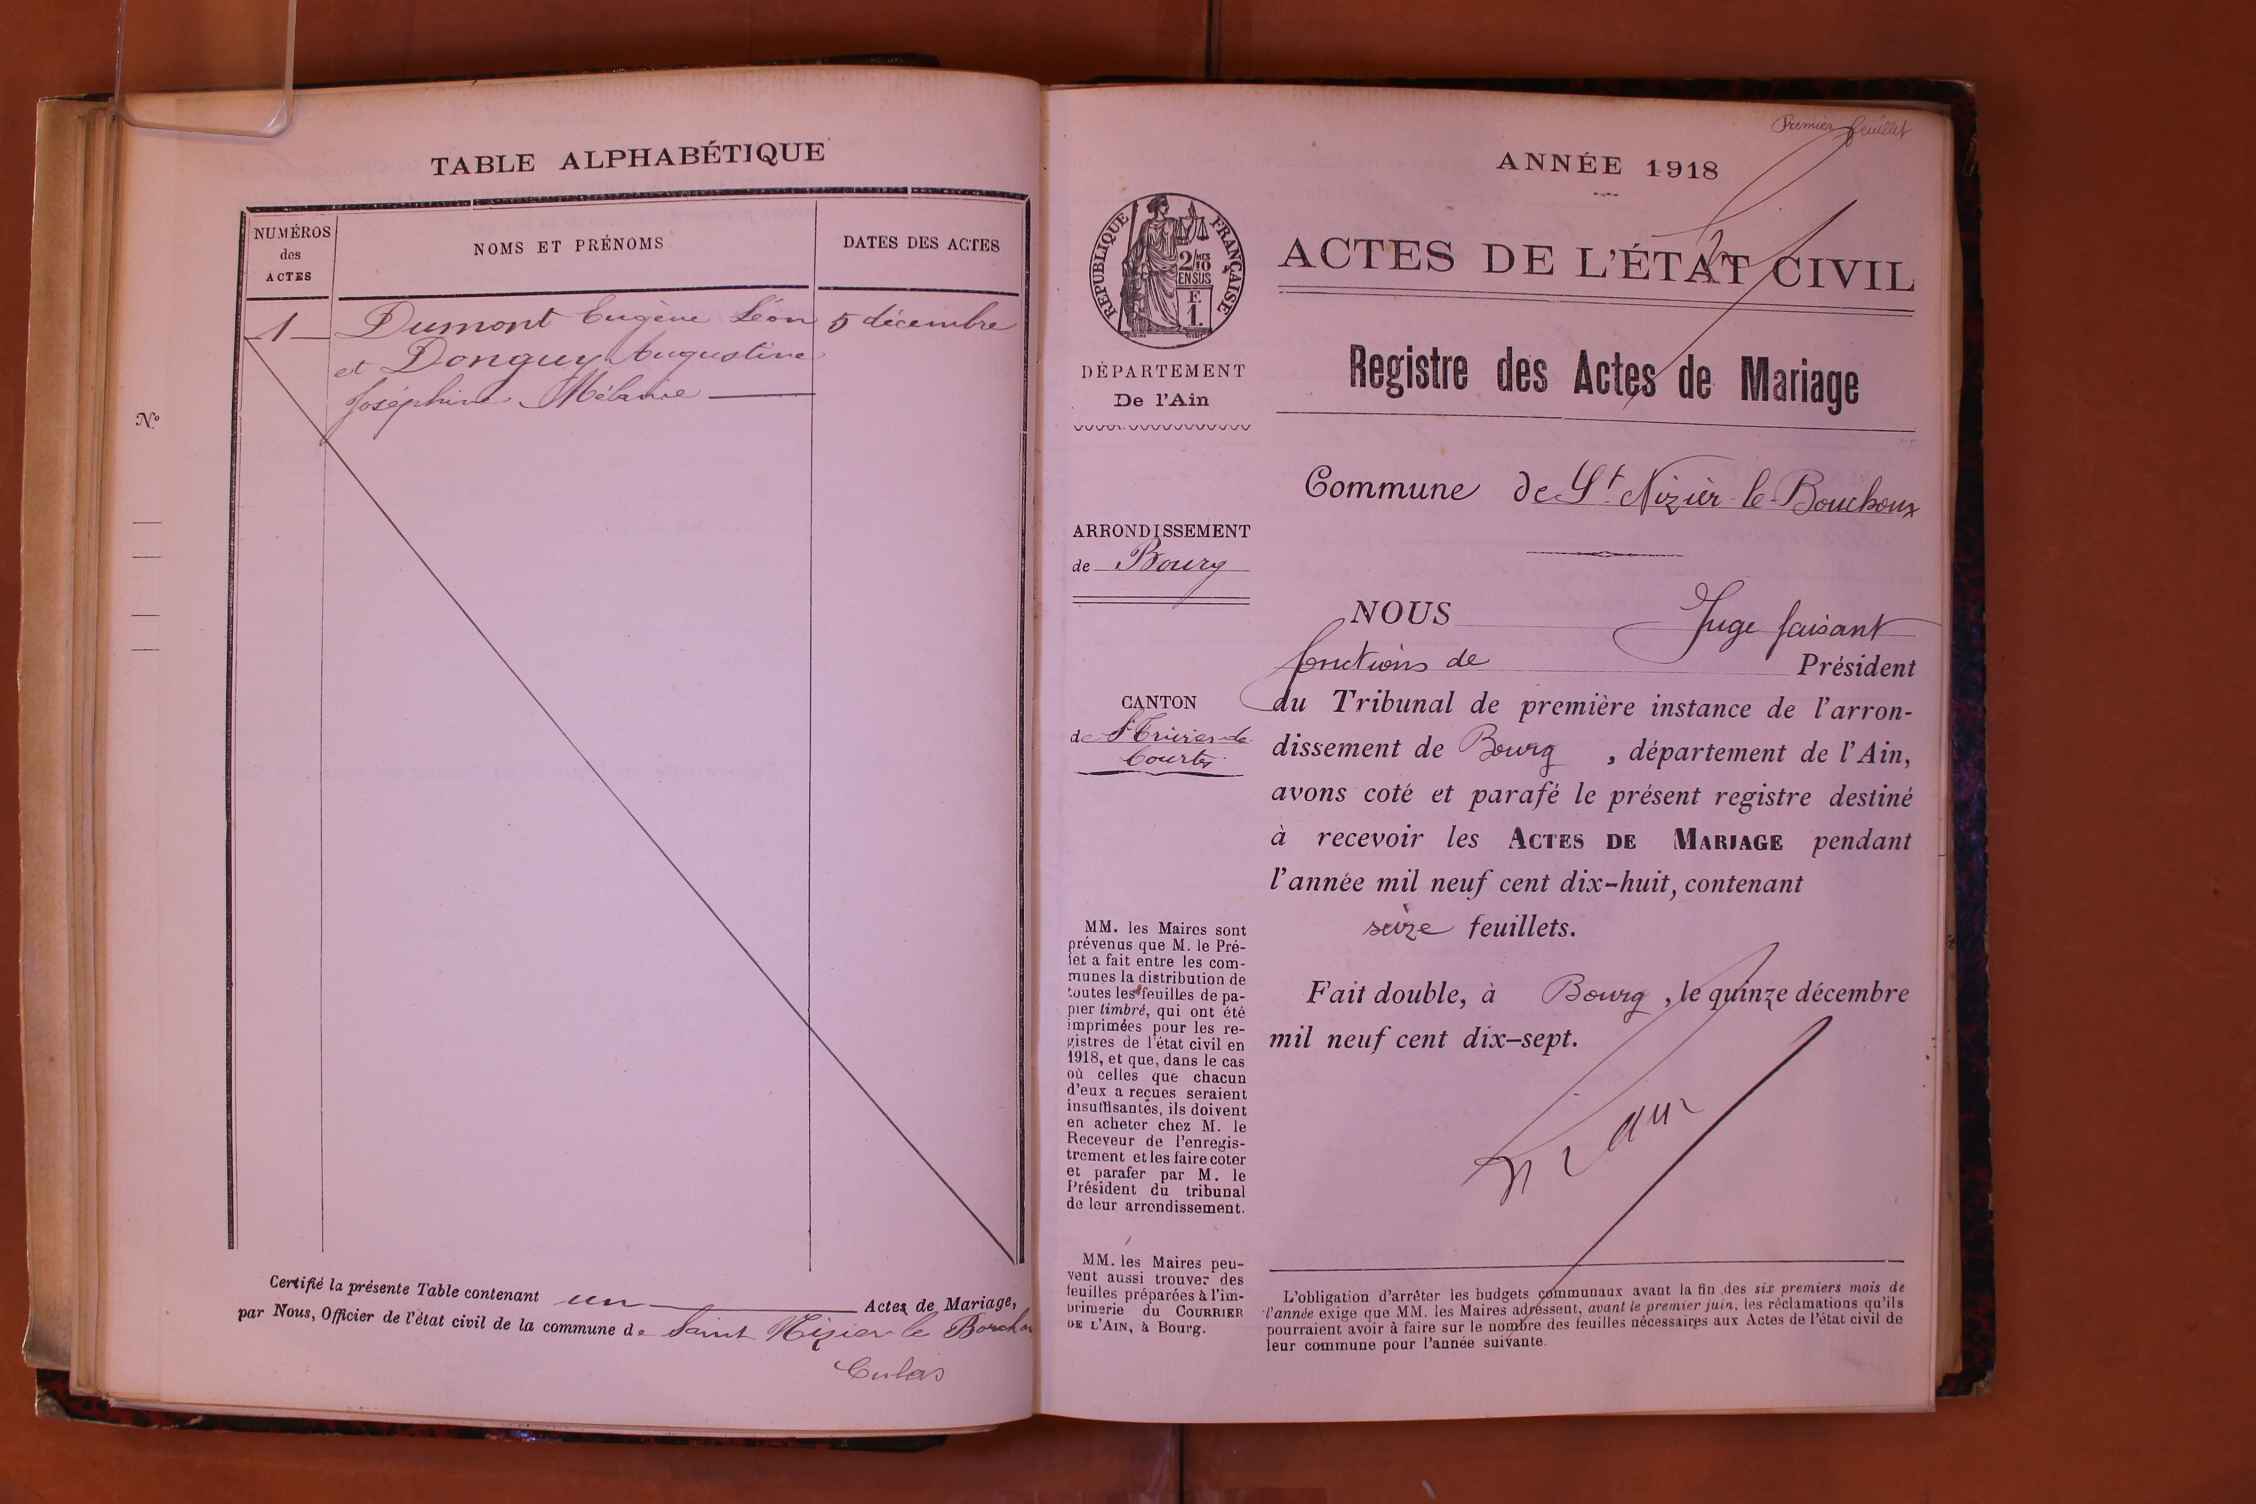 TABLE ALPHABÉTIQUE
NUMÉROS
des
ACTES
NOMS ET PRÉNOMS
DATES DES ACTES
1
Dumont Eugène Léon
5 décembre
et Donguy Augustine
Joséphine Mélanie
N°
Certifié la présente Table contenant un Actes de Mariage,
par Nous, Officier de l'état civil de la commune de Saint Nizier le Bouchoux
Premier feuillet
ANNÉE 1918
RÉPUBLIQUE FRANÇAISE
2/10
EN SUS
F.
1.
DÉPARTEMENT
De l'Ain
ARRONDISSEMENT
de Bourg
CANTON
de St Trivier de
Courtes
MM. les Maires sont
prévenus que M. le Pré-
fet a fait entre les com-
munes la distribution de
toutes les feuilles de pa-
pier timbré, qui ont été
imprimées pour les re-
gistres de l'état civil en
1918, et que, dans le cas
où celles que chacun
d'eux a reçues seraient
insuffisantes, ils doivent
en acheter chez M. le
Receveur de l'enregis-
trement et les faire coter
et parafer par M. le
Président du tribunal
de leur arrondissement.
MM. les Maires peu-
vent aussi trouver des
feuilles préparées à l'im-
primerie du COURRIER
DE L'AIN, à Bourg.
ACTES DE L'ÉTAT CIVIL
Registre des Actes de Mariage
Commune de St Nizier le Bouchoux
NOUS Juge faisant
fonctions de Président
du Tribunal de première instance de l'arron-
dissement de Bourg, département de l'Ain,
avons coté et parafé le présent registre destiné
à recevoir les ACTES DE MARIAGE pendant
l'année mil neuf cent dix-huit, contenant
seize feuillets.
Fait double, à Bourg, le quinze décembre
mil neuf cent dix-sept.
L'obligation d'arrêter les budgets communaux avant la fin des six premiers mois de
l'année exige que MM. les Maires adressent, avant le premier juin, les réclamations qu'ils
pourraient avoir à faire sur le nombre des feuilles nécessaires aux Actes de l'état civil de
leur commune pour l'année suivante.